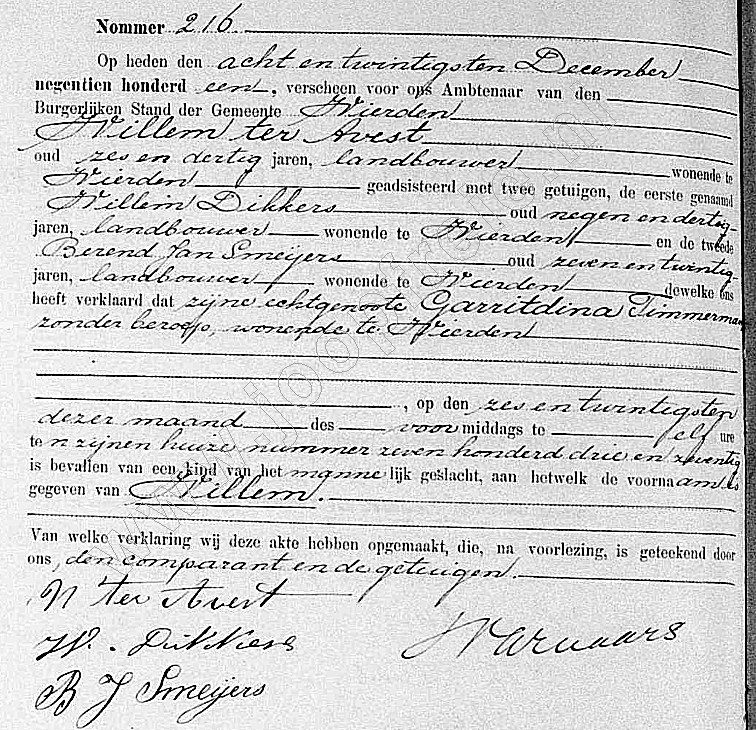 Nommer 216
Op heden den acht en twintigsten December
negentien honderd een, verscheen voor ons Ambtenaar van den
Burgerlijken Stand der Gemeente Wierden
Willem ter Avest
oud zes en dertig jaren, landbouwer wonende te
Wierden geadsisteerd met twee getuigen, de eerste genaamd
Willem Dikkers oud negen en dertig
jaren, landbouwer wonende te Wierden en de tweede
Berend Jan Smeijers oud zeven en twintig
jaren, landbouwer wonende te Wierden dewelke ons
heeft verklaard dat zijne echtgenoote Garritdina Timmerman
zonder beroep, wonende te Wierden
, op den zes en twintigsten
dezer maand des voor middags te elf ure
ten zijnen huize nummer zeven honderd drie en zeventig
is bevallen van een kind van het manne lijk geslacht, aan hetwelk de voornaam is
gegeven van Willem.
Van welke verklaring wij deze akte hebben opgemaakt, die, na voorlezing, is geteekend door
ons, den comparant en de getuigen.
W ter Avest
W. Dikkers
B J Smeijers